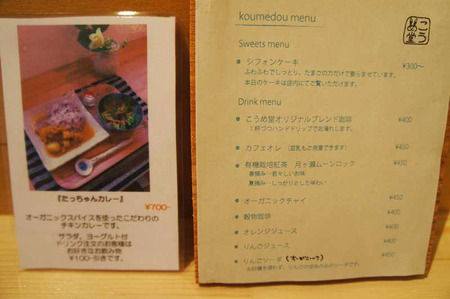 『たっちゃんカレー』
¥700-
オーガニックスパイスを使ったこだわりの
チキンカレーです。
サラダ、ヨーグルト付
ドリンク注文のお客様は
お好きなお飲み物
¥100-引きです。
koumedou menu
こう
め堂
Sweets menu
シフォンケーキ ¥300~
ふわふわでしっとり、たまごの力だけで膨らませています。
本日のケーキは店内にてご覧いただけます。
Drink menu
こうめ堂オリジナルブレンド珈琲 ¥400
1杯づつハンドドリップでお淹れします。
カフェオレ (豆乳もご用意できます) ¥450
有機栽培紅茶 月ヶ瀬ムーンロック ¥450
春摘み…若々しいお味
夏摘み…しっかりとした味わい
オーガニックチャイ ¥450
穀物珈琲 ¥400
オレンジジュース ¥400
りんごジュース ¥400
りんごソーダ (オーガニック) ¥450
お砂糖を使わず、りんごの甘みのみのソーダです。